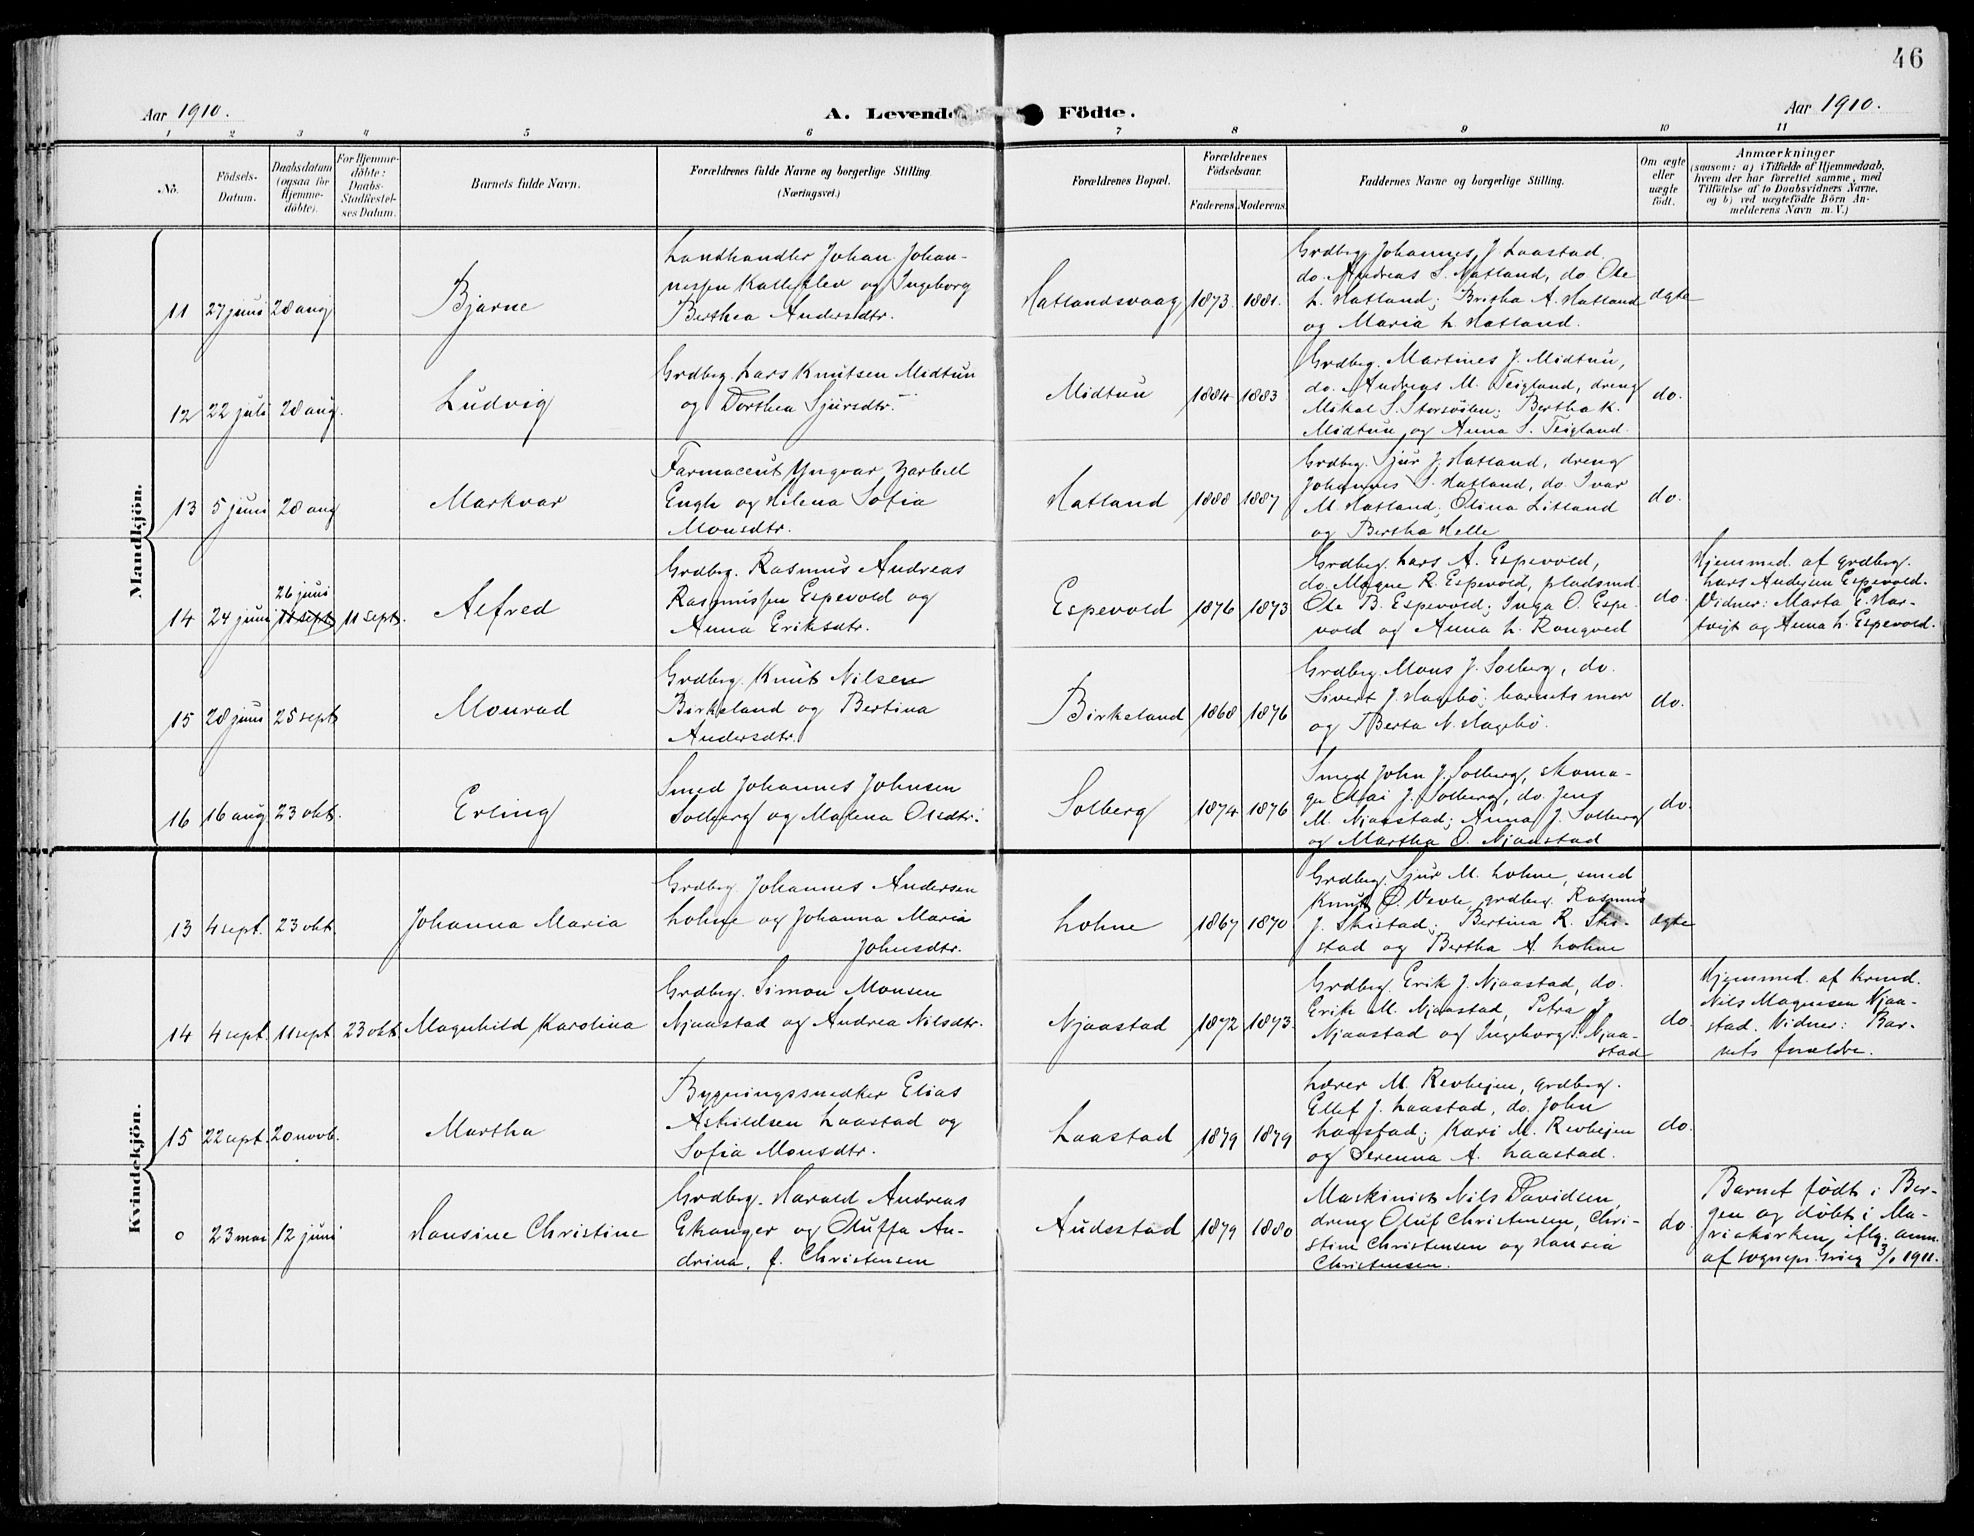 46
Aar 1910.
A. Levende Födte.
Aar 1910.
1 2 3 4 5 6 7 8 9 10 11
No.
Födsels-
Datum.
Daabsdatum
(ogsaa for
Hjemme-
döbte).
For Hjemme-
döbte:
Daabs-
Stadfæstel-
ses Datum.
Barnets fulde Navn.
Forældrenes fulde Navne og borgerlige Stilling
(Næringsvei.)
Forældrenes Bopæl.
Forældrenes
Födselsaar.
Faderens Moderens
Faddernes Navne og borgerlige Stilling.
Om ægte
eller
uægte
födt.
Anmærkninger
(saasom: a) i Tilfælde af Hjemmedaab,
hvem der har forrettet samme, med
Tilföielse af to Daabsvidners Navne,
og b) ved uægtefödte Börn An-
melderens Navn m. V.)
Mandkjön.
11 27 juni 28 aug
Bjarne
Landhandler Johan Johan-
nessen Kalleklev og Ingeborg
Berthea Andersdtr.
Hatlandsvaag 1873. 1881.
Grdbrg. Johannes J. Laastad.
do. Andreas S. Hatland, do Ole
L. Hatland; Britha A. Hatland
og Maria L. Hatland.
ægte
12 22 juli 28 aug.
Ludvig
Grdbrg. Lars Knutsen Midtun
og Dorthea Sjursdtr.
Midtun 1884 1883
Grdbrg. Martines J. Midtun,
do. Andreas M. Teigland, dreng
Mikal S. Storsöien; Bertha K.
Midtun og Anna S. Teigland.
do.
13 5 juni 28 aug
Markvar
Farmaceut Yngvar
Engh og Helena Sofia
Monsdtr.
Hatland 1888 1887
Grdbrg. Sjur J. Hatland, dreng
Johannes S. Hatland, do Ivar
M. Hatland; Olina Litland
og Bertha Helle
do.
14 24 juni 26 juni 11 sept 11 sept.
Alfred
Grdbrg. Rasmus Andreas
Rasmussen Espevold og
Anna Eriksdtr.
Espevold 1876 1873
Grdbrg. Lars A. Espevold,
do. Magne R. Espevold, pladsmd.
Ole B. Espevold; Inga O. Espe-
vold og Anna L. Rongved
do.
Hjemmed. af grdbrg.
Lars Andersen Espevold.
Vidner: Marta E. Har-
tvigt og Anna L. Espevold.
15 28 juni 25 sept
Monrad
Grdbrg. Knut Nilsen
Birkeland og Bertina
Andersdtr.
Birkeland 1868 1876
Grdbrg. Mons J. Solberg, do.
Sivert J. Hagebö; barnets mor
og Berta N. Hagebö.
do.
16 16 aug 23 okt.
Erling
Smed Johannes Johnsen
Solberg og Malena Olsdtr.
Solberg 1874 1876
Smed John J. Solberg, skoma-
ger J. Solberg, do. Jens
M. Njaastad; Anna J. Solberg
og Martha O. Njaastad
do.
Kvindekjön.
13 4 sept. 23 okt.
Johanna Maria
Grdbrg. Johannes Andersen
Lohne og Johanna Maria
Johnsdtr.
Lohne 1867 1870
Grdbrg. Sjur M. Lohne, smed
Knut Ö. Vevle, grdbrg. Rasmus
J. Skistad; Bertina R. Ski-
stad og Bertha A. Lohne
ægte
14 4 sept. 11 sept 23 okt.
Magnhild Karolina
Grdbrg. Simon Monsen
Njaastad og Andrea Nilsdtr.
Njaastad 1872 1873.
Grdbrg. Erik J. Njaastad, do.
Erik M. Njaastad, Petra J.
Njaastad og Ingeborg S. Njaa-
stad
do.
Hjemmed. af
Nils Magnusen Njaa-
stad. Vidner: Bar-
nets forældre.
15 22 sept. 20 novb.
Martha
Bygningssnedker Elias
Askildsen Laastad og
Sofia Monsdtr.
Laastad 1879 1879
Lærer M. Revheim, grdbrg.
Ellef J. Laastad, do. John
Laastad; Kari M. Revheim
og Serenna A. Laastad.
do.
0 23 mai 12 juni
Hansine Christine
Grdbrg. Harald Andreas
Ekanger og Oluffa An-
drina, f. Christensen
Audestad 1879 1880
Maskinist Nils Davidsen,
dreng Oluf Christensen, Chri-
stine Christensen og Hansia
Christensen.
do.
Barnet födt i Ber-
gen og döbt i Ma-
riakirken, iflg. anm.
af sognepr. Grieg 3/1 1911.